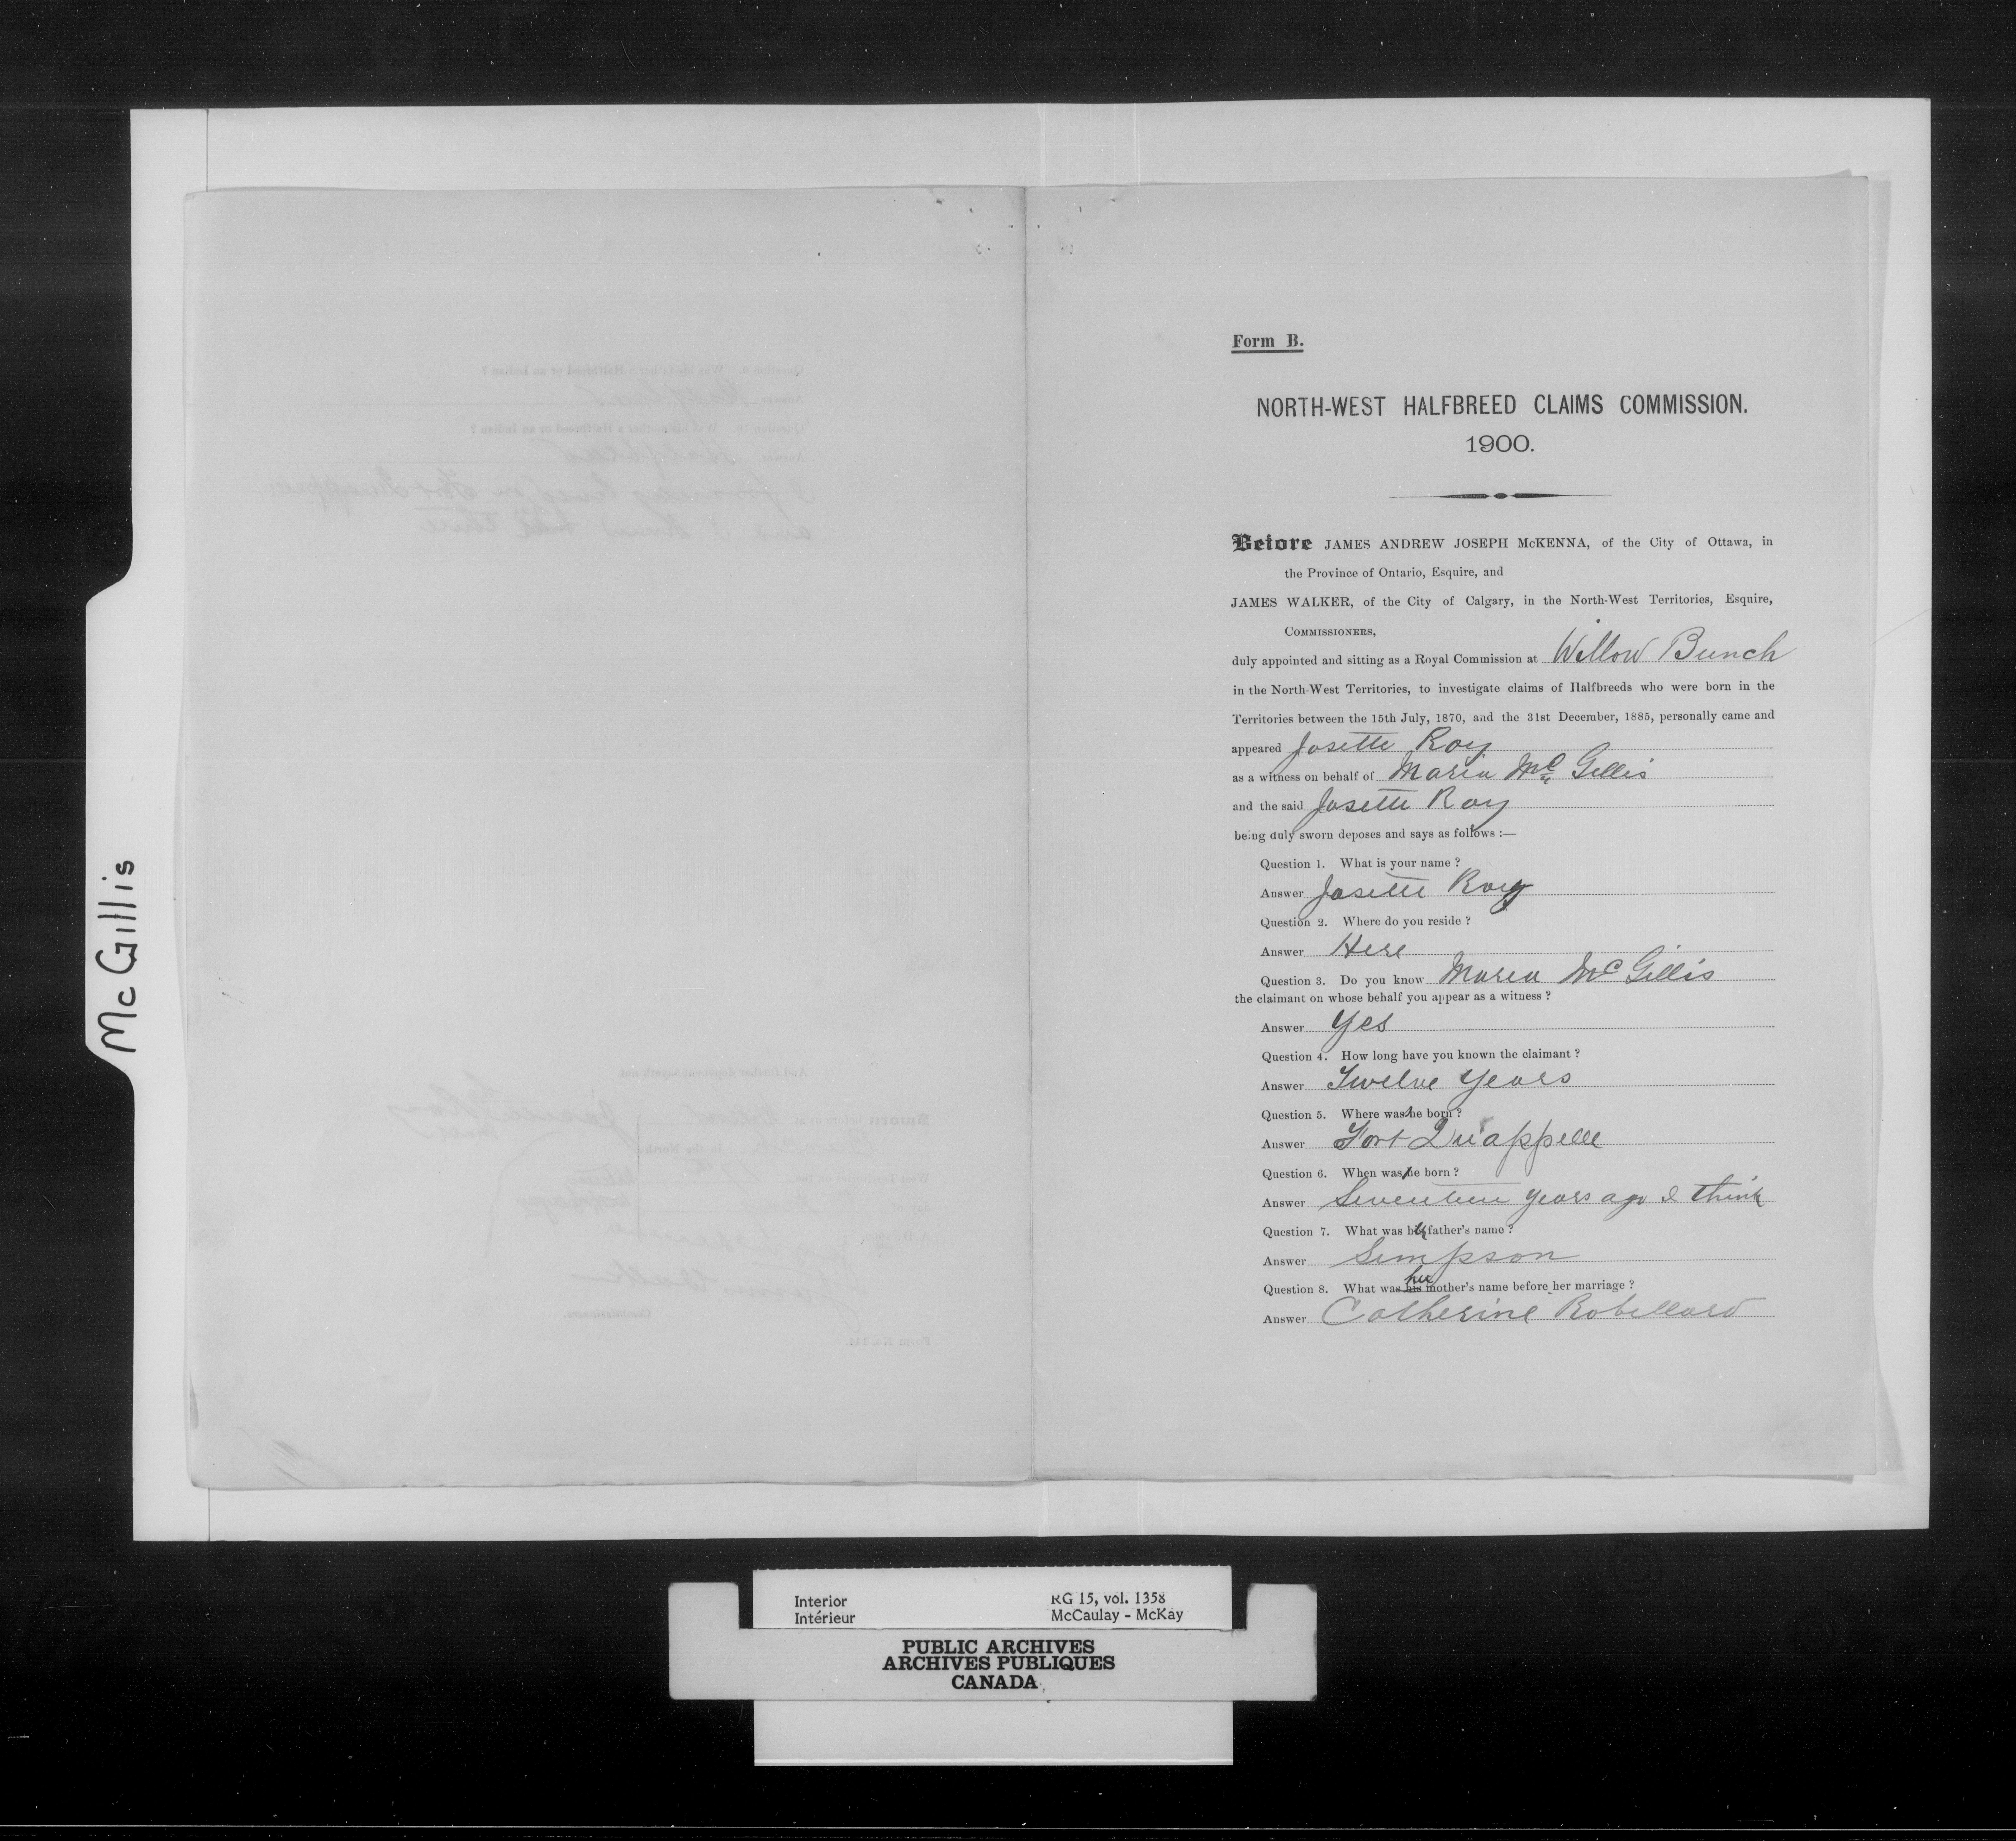 McGillis
Form B.
NORTH-WEST HALFBREED CLAIMS COMMISSION.
1900.
Before JAMES ANDREW JOSEPH McKENNA, of the City of Ottawa, in
the Province of Ontario, Esquire, and
JAMES WALKER, of the City of Calgary, in the North-West Territories, Esquire,
COMMISSIONERS,
duly appointed and sitting as a Royal Commission at Willow Bunch
in the North-West Territories, to investigate claims of Halfbreeds who were born in the
Territories between the 15th July, 1870, and the 31st December, 1885, personally came and
appeared Josette Roy
as a witness on behalf of Maria McGillis
and the said Josette Roy
being duly sworn deposes and says as follows :—
Question 1. What is your name ?
Answer Josette Roy
Question 2. Where do you reside ?
Answer Here
Question 3. Do you know Maria McGillis
the claimant on whose behalf you appear as a witness ?
Answer Yes
Question 4. How long have you known the claimant ?
Answer Twelve Years
Question 5. Where was he born ?
Answer Fort Quappelle
Question 6. When was he born ?
Answer Seventeen years ago I think
Question 7. What was her father's name ?
Answer Simpson
Question 8. What was his her mother's name before her marriage ?
Answer Catherine Robillard
Interior RG 15, vol. 1358
Intérieur McCaulay - McKay
PUBLIC ARCHIVES
ARCHIVES PUBLIQUES
CANADA